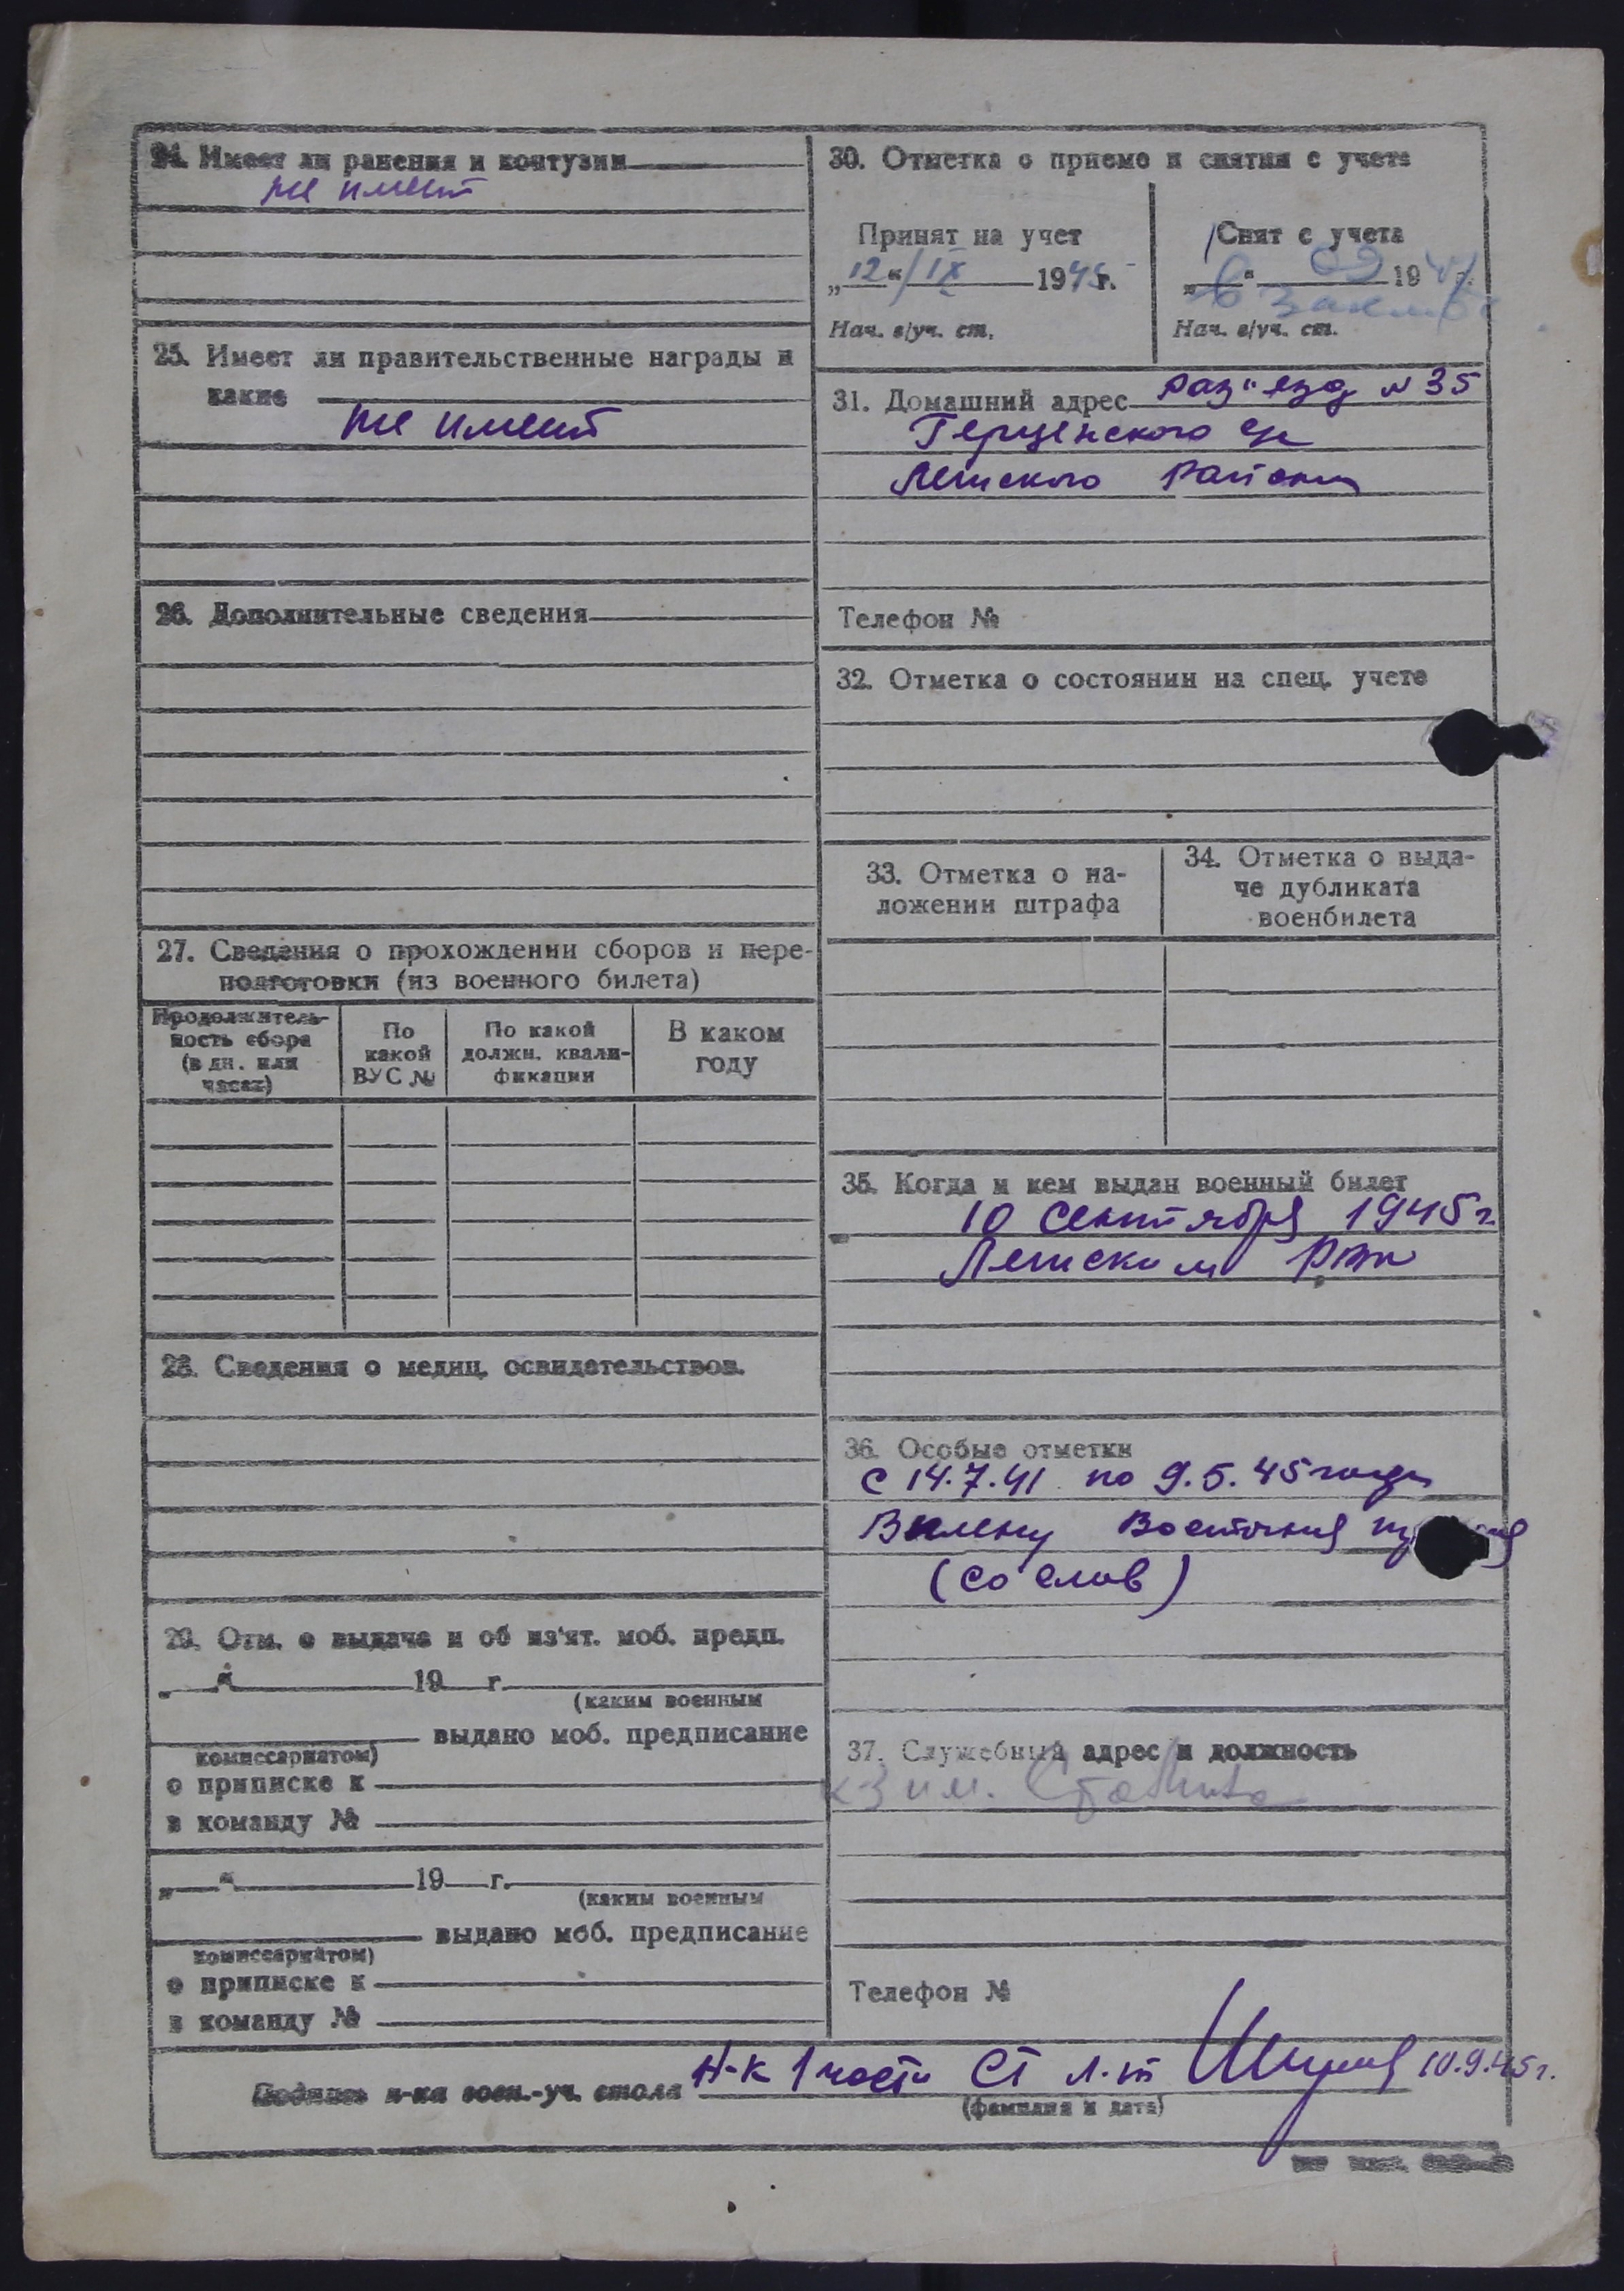 24. Имеет ли ранения и контузии
не имеет
25. Имеет ли правительственные награды и
какие
не имеет
26. Дополнительные сведения
27. Сведения о прохождении сборов и пере-
подготовки (из военного билета)
Продолжитель-
ность сбора
(в дн. или
часах)
По
какой
ВУС №
По какой
должн. квали-
фикации
В каком
году
28. Сведения о медиц. освидетельствов.
29. Отм. о выдаче и об из'ят. моб. предп.
„ “ 19 г.
(каким военным
выдано моб. предписание
комиссариатом)
о приписке к
в команду №
„ “ 19 г.
(каким военным
выдано моб. предписание
комиссариатом)
о приписке к
в команду №
30. Отметка о приеме и снятии с учета
Принят на учет
„12“ IX 1945г.
Нач. в/уч. ст.
Снят с учета
„6“ 19 г.
Нач. в/уч. ст.
31. Домашний адрес раз"езд № 35
с/с
района
Телефон №
32. Отметка о состоянии на спец. учете
33. Отметка о на-
ложении штрафа
34. Отметка о выда-
че дубликата
военбилета
35. Когда и кем выдан военный билет
10 сентября 1945г
РВК
36. Особые отметки
с 14.7.41 по 9.5.45 года
В плену Восточная
(со слов)
37. Служебный адрес и должность
к-з им. Сталина
Телефон №
Подпись н-ка воен.-уч. стола Н-к 1 части Ст л-т 10.9.45г.
(фамилия и дата)